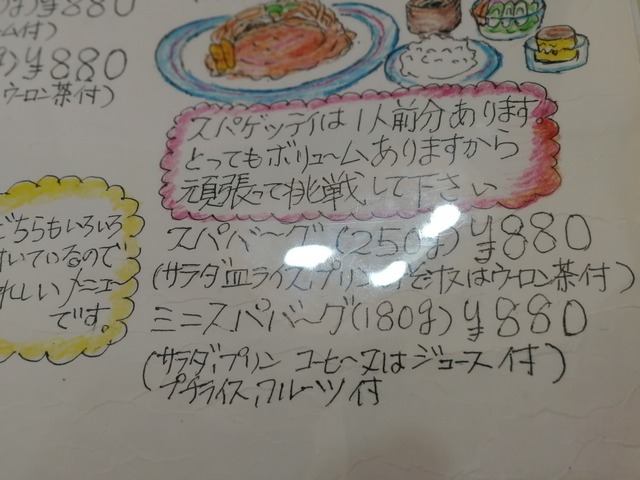 ¥880
ム付)
¥880
ウーロン茶付)
スパゲッティは1人前分あります。
とってもボリュームありますから
頑張って挑戦して下さい
どちらもいろいろ
付いているので
れしいメニュー
です。
スパバーグ(250g)¥880
(サラダ,皿ライス,プリン,又はウーロン茶付)
ミニスパバーグ(180g)¥880
(サラダ,プリン コーヒー又はジュース付)
プチライス,フルーツ付